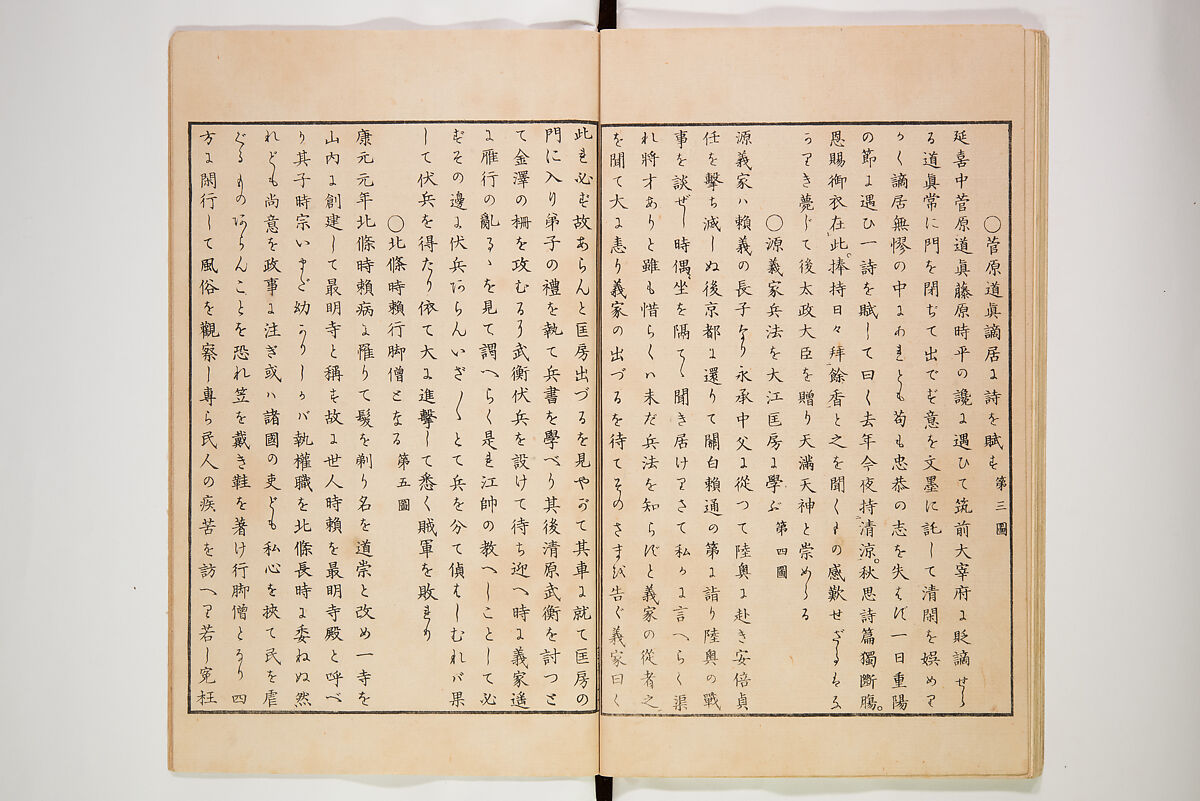 〇菅原道眞謫居に詩を賦す 第三圖
延喜中菅原道眞藤原時平の讒に遇ひて筑前大宰府に貶謫せら
る道眞常に門を閉ぢて出でず意を文墨に託して清閑を娯めり
かく謫居無憀の中にあれとも苟も忠恭の志を失はず一日重陽
の節に遇ひ一詩を賦して曰く去年今夜持清涼。秋思詩篇獨斷膓。
恩賜御衣在此。捧持日々拜餘香と之を聞くもの感歎せざるはな
かりき薨じて後太政大臣を贈り天滿天神と崇めらる
〇源義家兵法を大江匡房に學ぶ 第四圖
源義家ハ賴義の長子なり永承中父に從つて陸奧に赴き安倍貞
任を擊ち滅しぬ後京都に還りて關白賴通の第に詣り陸奧の戰
事を談ぜし時偶〻坐を隔てゝ聞き居けりさて私かに言へらく渠
れ將才ありと雖も惜らくハ未だ兵法を知らずと義家の從者之
を聞て大に恚り義家の出づるを待てそのさまを告ぐ義家曰く
此れ必ず故あらんと匡房出づるを見やがて其車に就て匡房の
門に入り弟子の禮を執て兵書を學べり其後清原武衡を討つと
て金澤の柵を攻むるに武衡伏兵を設けて待ち迎へ時に義家遙
に雁行の亂るゝを見て謂へらく是れ江帥の教へしことして必
ずその邊に伏兵あらんいざ〳〵とて兵を分て偵はしむれバ果
して伏兵を得たり依て大に進擊して悉く賊軍を敗れり
〇北條時賴行脚僧となる 第五圖
康元元年北條時賴病に罹りて髮を剃り名を道崇と改め一寺を
山内に創建して最明寺と稱す故に世人時賴を最明寺殿と呼べ
り其子時宗いまだ幼かりしかバ執權職を北條長時に委ねぬ然
れども尚意を政事に注ぎ或ハ諸國の吏ども私心を挾て民を虐
ぐるものあらんことを恐れ笠を戴き鞋を著け行脚僧となり四
方に閑行して風俗を觀察し專ら民人の疾苦を訪へり若し冤枉